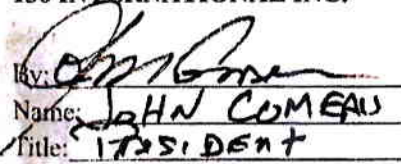 INFORMATIONAL INC.
By:
Name: JOHN COMEAU
Title: PRESIDENT